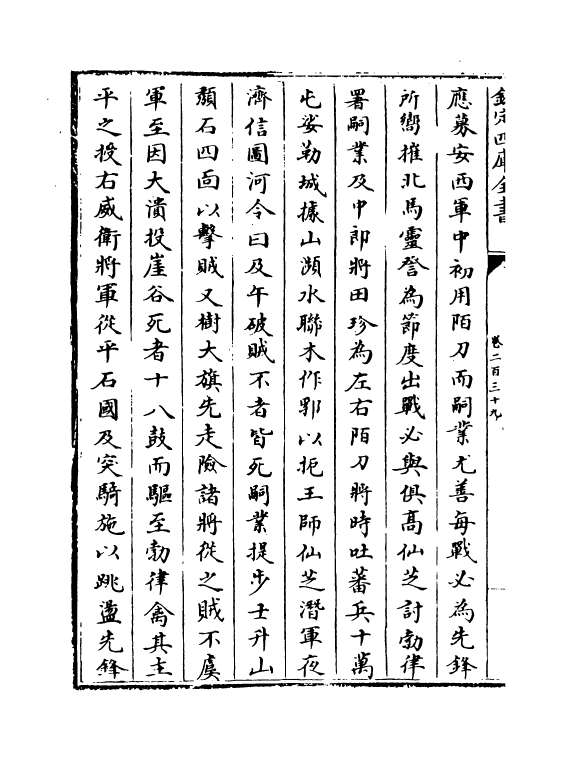 欽定四庫全書
卷二百三十九
應募安西軍中初用陌刀而嗣業尤善每戰必為先鋒
所嚮摧北馬靈詧為節度出戰必與俱高仙芝討勃律
署嗣業及中郎將田珍為左右陌刀將時吐蕃兵十萬
屯娑勒城據山瀕水聯木作郛以扼王師仙芝潛軍夜
濟信圖河令曰及午破賊不者皆死嗣業提步士升山
頽石四面以擊賊又樹大旗先走險諸將從之賊不虞
軍至因大潰投崖谷死者十八鼓而驅至勃律禽其主
平之授右威衛將軍從平石國及突騎施以跳盪先鋒